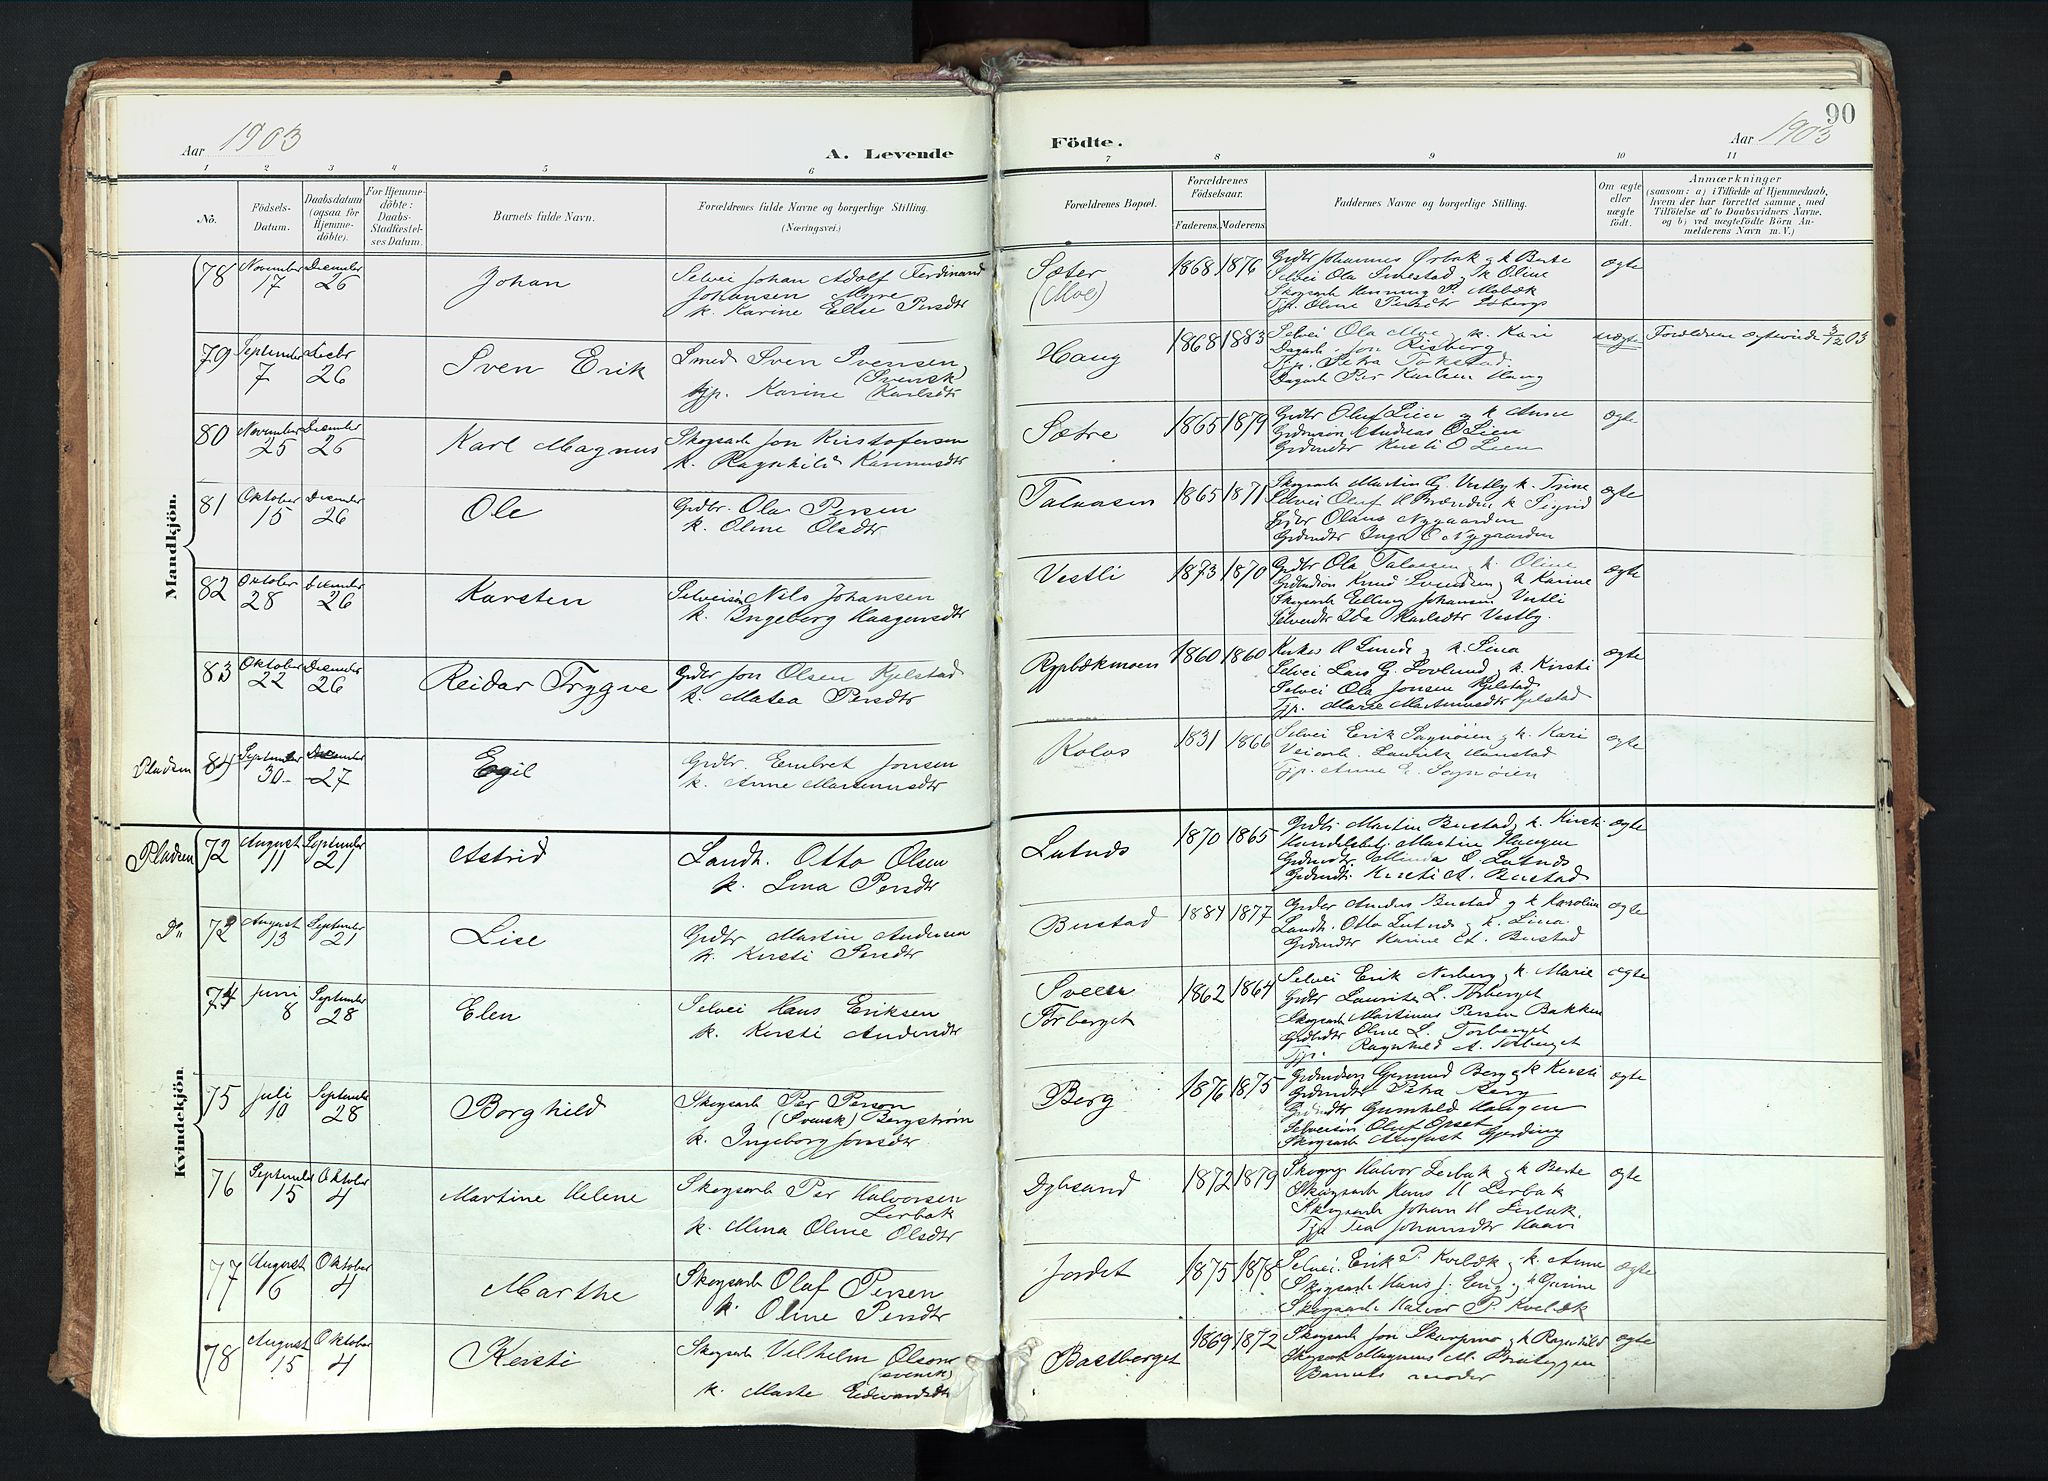 90
Aar 1903
A. Levende
Födte.
Aar 1903
1 2 3 4 5 6 7 8 9 10 11
No.
Födsels-
Datum.
Daabsdatum
(ogsaa for
Hjemme-
döbte).
For Hjemme-
döbte:
Daabs-
Stadfæstel-
ses Datum.
Barnets fulde Navn.
Forældrenes fulde Navne og borgerlige Stilling.
(Næringsvei.)
Forældrenes Bopæl.
Forældrenes
Födselsaar.
Faderens. Moderens.
Faddernes Navne og borgerlige Stilling.
Om ægte
eller
uægte
födt.
Anmærkninger
(saasom: a) i Tilfælde af Hjemmedaab,
hvem der har forrettet samme, med
Tilföielse af to Daabsvidners Navne,
og b) ved uægtefödte Börn An-
melderens Navn m. V.)
Mandkjön.
78 November 17 December 26 Johan
Selvei Johan Adolf Ferdinand
Johansen Myre
k. Karine Elise Persdtr
Sæter
(Moe)
1868 1876
Grdbr Johannes Ørbak og k Berte
Selvei Ola Sinestad og k Oline
Skogsarb Henning P. Mobæk
Tjp. Oline Persdtr
ægte
79 September 7 Decbr 26 Sven Erik
Smed Sven Svensen
(Svensk)
tjp. Karine Karlsdtr
Haug
1868 1883
Selvei Ola Moe og k. Kari
Dagarb. Jon Risberg
Tjp. Petra Tokstad
Dagarb Per Karlsen Haug
uægte
Forældrene ægteviede 3/12 03
80 November 25 December 26 Karl Magnus
Skogsarb Jon Kristofersen
k. Ragnhild Rasmusdtr
Sætre
1865 1879
Grdbr Oluf Lien og k Anne
Grdmsøn Andreas O Lien
Grdmdtr Kirsti O Lien
ægte
81 Oktober 15 December 26 Ole
Grdbr. Ola Persen
k. Oline Olsdtr
Talaasen
1865 1871
Skogsarb Martin G. Vestby k. Trine
Selvei Oluf H Brænden k Sigrid
Grdbr Olaus Nygaarden
Grdmdtr Inga O Nygaarden
ægte
82 Oktober 28 December 26 Karsten
Selveisøn Nils Johansen
k. Ingeborg Haagensdtr
Vestli
1873 1870
Grdbr Ola Talaasen og k. Oline
Grdmdsøn Knud Svendsen og k Karine
Skogsarb Elling Johansen Vestli
Selveidtr Ida Karlsdtr Vestby.
ægte
83 Oktober 22 December 26 Reidar Trygve
Grdbr Jon Olsen Kjelstad
k. Matea Persdtr
Rypbækmoen
1860 1860
Kirkes H Lunde og k. Lina
Selvei Lars G. Lovlund og k. Kirsti
Selvei Ola Jonsen Kjelstad
Tjp. Marie Martinusdtr Kjelstad
ægte
Pladsen
84 September 30 December 27 Egil
Grdbr. Embret Jonsen
k. Anne Martinusdtr
Kolos
1831 1866
Selvei Erik Sognøien og k. Kari
Veiarb. Lauritz Hanstad
Tjp. Anne E. Sognøien
ægte
Kvindekjön.
Pladsen
72 August 11 September 21 Astrid
Landh. Otto Olsen
k. Lina Persdtr
Lutnds
1870 1865
Grdbr Martin Bustad og k. Kirsti
Handelsbetj. Martin Haugen
Grdmdtr. Minda O. Lutnds
Grdmdtr. Kirsti A. Bustad
ægte
Do
73 August 13 September 21 Lise
Grdbr Martin Andersen
k. Kirsti Persdtr
Bustad
1884 1877
Grdbr Anders Bustad og k Karoline
Landh. Otto Lutnds og k. Lina
Grdmdtr Karine A. Bustad
ægte
74 Juni 8 September 28 Elen
Selvei Hans Eriksen
k. Kirsti Andersdtr
Sveen
Torberget
1862 1864
Selvei Erik Norberg og k. Marie
Grdbr Laurits L. Torberget
Skogsarb Martinus Persen Bakken
Grdmdtr Oline L. Torberget
Tjp. Ragnhild A. Torberget
ægte
75 Juli 10 September 28 Borghild
Skogsarb Per Person
(Svensk) Bergström
k. Ingeborg Jonsdtr
Berg
1876 1875
Grdmdsøn Gunund Berg og k Kirsti
Grdmdtr Petra Berg
Grdmdtr Gunhild Haugen
Selveisøn Oluf Opset
Skogsarb August Gjerding
ægte
76 September 15 Oktober 4 Martine Helene
Skogsarb Per Halvorsen
Lerbak
k. Mina Oline Olsdtr
Dybsand
1872 1879
Skogv Halvor Lerbak og k Berte
Skogsarb Hans H Lerbak
Skogsarb Johan H Lerbak.
Tjp Tea Johansdtr Haavi
ægte
77 August 6 Oktober 4 Marthe
Skogsarb Oluf Persen
k. Oline Persdtr
Jordet
1875 1878
Selvei Erik P. Kvelæk og k. Anne
Skogsarb Hans J. Eng og k Gurine
Skogsarb Halvor P. Kvelæk
ægte
78 August 15 Oktober 4 Kersti
Skogsarb Vilhelm Olsson
(svensk)
k. Marte Edvardsdtr
Bastberget
1869 1872
Skogsarb Jon Skarpmo og k Ragnhild
Skogsarb Magnus M. Brateggen
Barnets moder
ægte